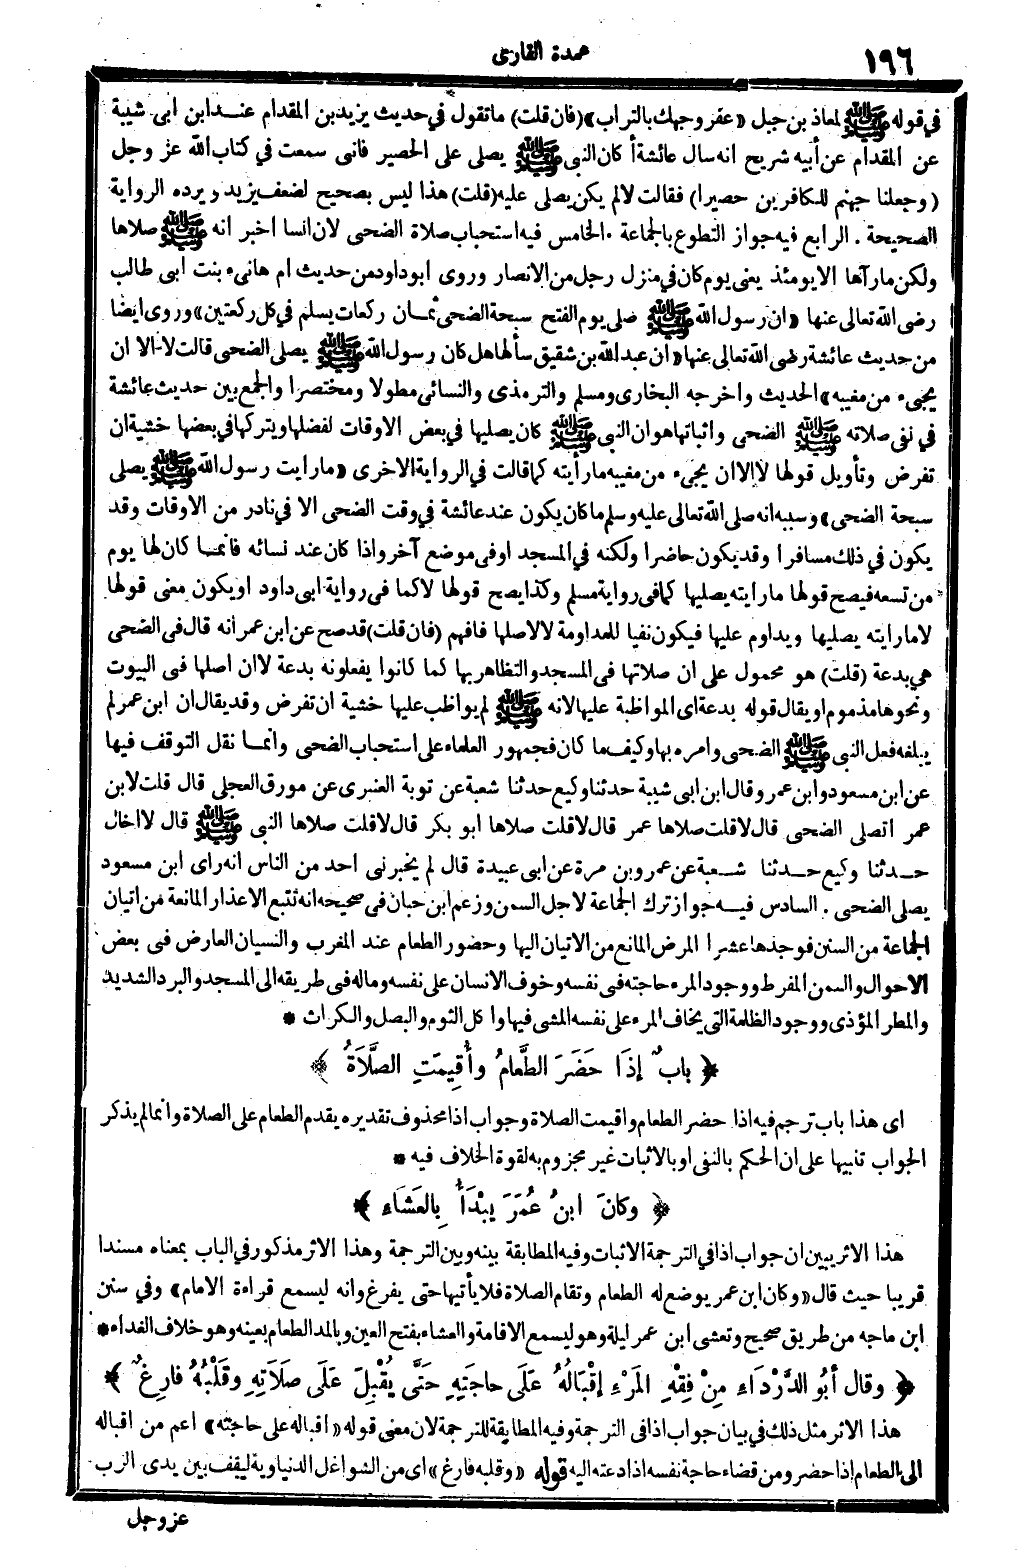 ١٩٦
عمدة القارى
فى قوله ﷺ لمعاذ بن جبل «عفر وجهك بالتراب» (فان قلت) ما تقول فى حديث يزيد بن المقدام عند ابن ابى شيبة
عن المقدام عن أبيه شريح انه سال عائشة أكان النبى ﷺ يصلى على الحصير فانى سمعت فى كتاب الله عز وجل
(وجعلنا جهنم للكافرين حصيرا) فقالت لا لم يكن يصلى عليه (قلت) هذا ليس بصحيح لضعف يزيد ويرده الرواية
الصحيحة . الرابع فيه جواز التطوع بالجماعة . الخامس فيه استحباب صلاة الضحى لان انسا اخبر انه ﷺ صلاها
ولكن ما رآها الا يومئذ يعنى يوم كان فى منزل رجل من الانصار وروى ابو داود من حديث ام هانىء بنت ابى طالب
رضى الله تعالى عنها «ان رسول الله ﷺ صلى يوم الفتح سبحة الضحى ثمان ركعات يسلم فى كل ركعتين» وروى ايضا
من حديث عائشة رضى الله تعالى عنها «ان عبد الله بن شقيق سألها هل كان رسول الله ﷺ يصلى الضحى قالت لا الا ان
يجىء من مغيبه» الحديث واخرجه البخارى ومسلم والترمذى والنسائى مطولا ومختصرا والجمع بين حديث عائشة
فى نفى صلاته ﷺ الضحى واثباتها هو ان النبى ﷺ كان يصليها فى بعض الاوقات لفضلها ويتركها فى بعضها خشية ان
تفرض وتأويل قولها لا الا ان يجىء من مغيبه ما رأيته كما قالت فى الرواية الاخرى «ما رايت رسول الله ﷺ يصلى
سبحة الضحى» وسببه انه صلى الله تعالى عليه وسلم ما كان يكون عند عائشة فى وقت الضحى الا فى نادر من الاوقات وقد
يكون فى ذلك مسافرا وقد يكون حاضرا ولكنه فى المسجد او فى موضع آخر واذا كان عند نسائه فانما كان لها يوم
من تسعه فيصح قولها ما رايته يصليها كما فى رواية مسلم وكذا يصح قولها لا كما فى رواية ابى داود او يكون معنى قولها
لا ما رايته يصليها ويداوم عليها فيكون نفيا للمداومة لا لاصلها فافهم (فان قلت) قد صح عن ابن عمر انه قال فى الضحى
هى بدعة (قلت) هو محمول على ان صلاتها فى المسجد والتظاهر بها كما كانوا يفعلونه بدعة لا ان اصلها فى البيوت
ونحوها مذموم او يقال قوله بدعة اى المواظبة عليها لانه ﷺ لم يواظب عليها خشية ان تفرض وقد يقال ان ابن عمر لم
يبلغه فعل النبى ﷺ الضحى وامره بها وكيف ما كان فجمهور العلماء على استحباب الضحى وانما نقل التوقف فيها
عن ابن مسعود وابن عمر وقال ابن ابى شيبة حدثنا وكيع حدثنا شعبة عن توبة العنبرى عن مورق العجلى قال قلت لابن
عمر اتصلى الضحى قال لا قلت صلاها عمر قال لا قلت صلاها ابو بكر قال لا قلت صلاها النبى ﷺ قال لا اخال
حدثنا وكيع حدثنا شعبة عن عمرو بن مرة عن ابى عبيدة قال لم يخبرنى احد من الناس انه راى ابن مسعود
يصلى الضحى . السادس فيه جواز ترك الجماعة لاجل السمن وزعم ابن حبان فى صحيحه انه تتبع الاعذار المانعة من اتيان
الجماعة من السنن فوجدها عشرا المرض المانع من الاتيان اليها وحضور الطعام عند المغرب والنسيان العارض فى بعض
الاحوال والسمن المفرط ووجود المرء حاجته فى نفسه وخوف الانسان على نفسه وماله فى طريقه الى المسجد والبرد الشديد
والمطر المؤذى ووجود الظلمة التى يخاف المرء على نفسه المشى فيها واكل الثوم والبصل والكراث *
﴿ بابٌ إذَا حَضَرَ الطَّعامُ وأُقِيمَتِ الصَّلَاةُ ﴾
اى هذا باب ترجم فيه اذا حضر الطعام واقيمت الصلاة وجواب اذا محذوف تقديره يقدم الطعام على الصلاة وانما لم يذكر
الجواب تنبيها على ان الحكم بالنفى او بالاثبات غير مجزوم به لقوة الخلاف فيه *
﴿ وكانَ ابنُ عُمَرَ يَبْدَأُ بِالعَشَاءِ ﴾
هذا الاثر يبين ان جواب اذا فى الترجمة الاثبات وفيه المطابقة بينه وبين الترجمة وهذا الاثر مذكور فى الباب بمعناه مسندا
قريبا حيث قال «وكان ابن عمر يوضع له الطعام وتقام الصلاة فلا يأتيها حتى يفرغ وانه ليسمع قراءة الامام» وفى سنن
ابن ماجه من طريق صحيح وتعشى ابن عمر ليلة وهو ليسمع الاقامة والعشاء بفتح العين وبالمد الطعام بعينه وهو خلاف الغداء *
﴿ وقال أبُو الدَّرْدَاءِ مِنْ فِقْهِ المَرْءِ إقْبَالُهُ عَلَى حاجَتِهِ حَتَّى يُقْبِلَ عَلَى صلَاتِهِ وقَلْبُهُ فارِغٌ ﴾
هذا الاثر مثل ذلك فى بيان جواب اذا فى الترجمة وفيه المطابقة للترجمة لان معنى قوله «اقباله على حاجته» اعم من اقباله
الى الطعام إذا حضر ومن قضاء حاجة نفسه اذا دعته اليه قوله «وقلبه فارغ» اى من الشواغل الدنياوية ليقف بين يدى الرب
عز وجل